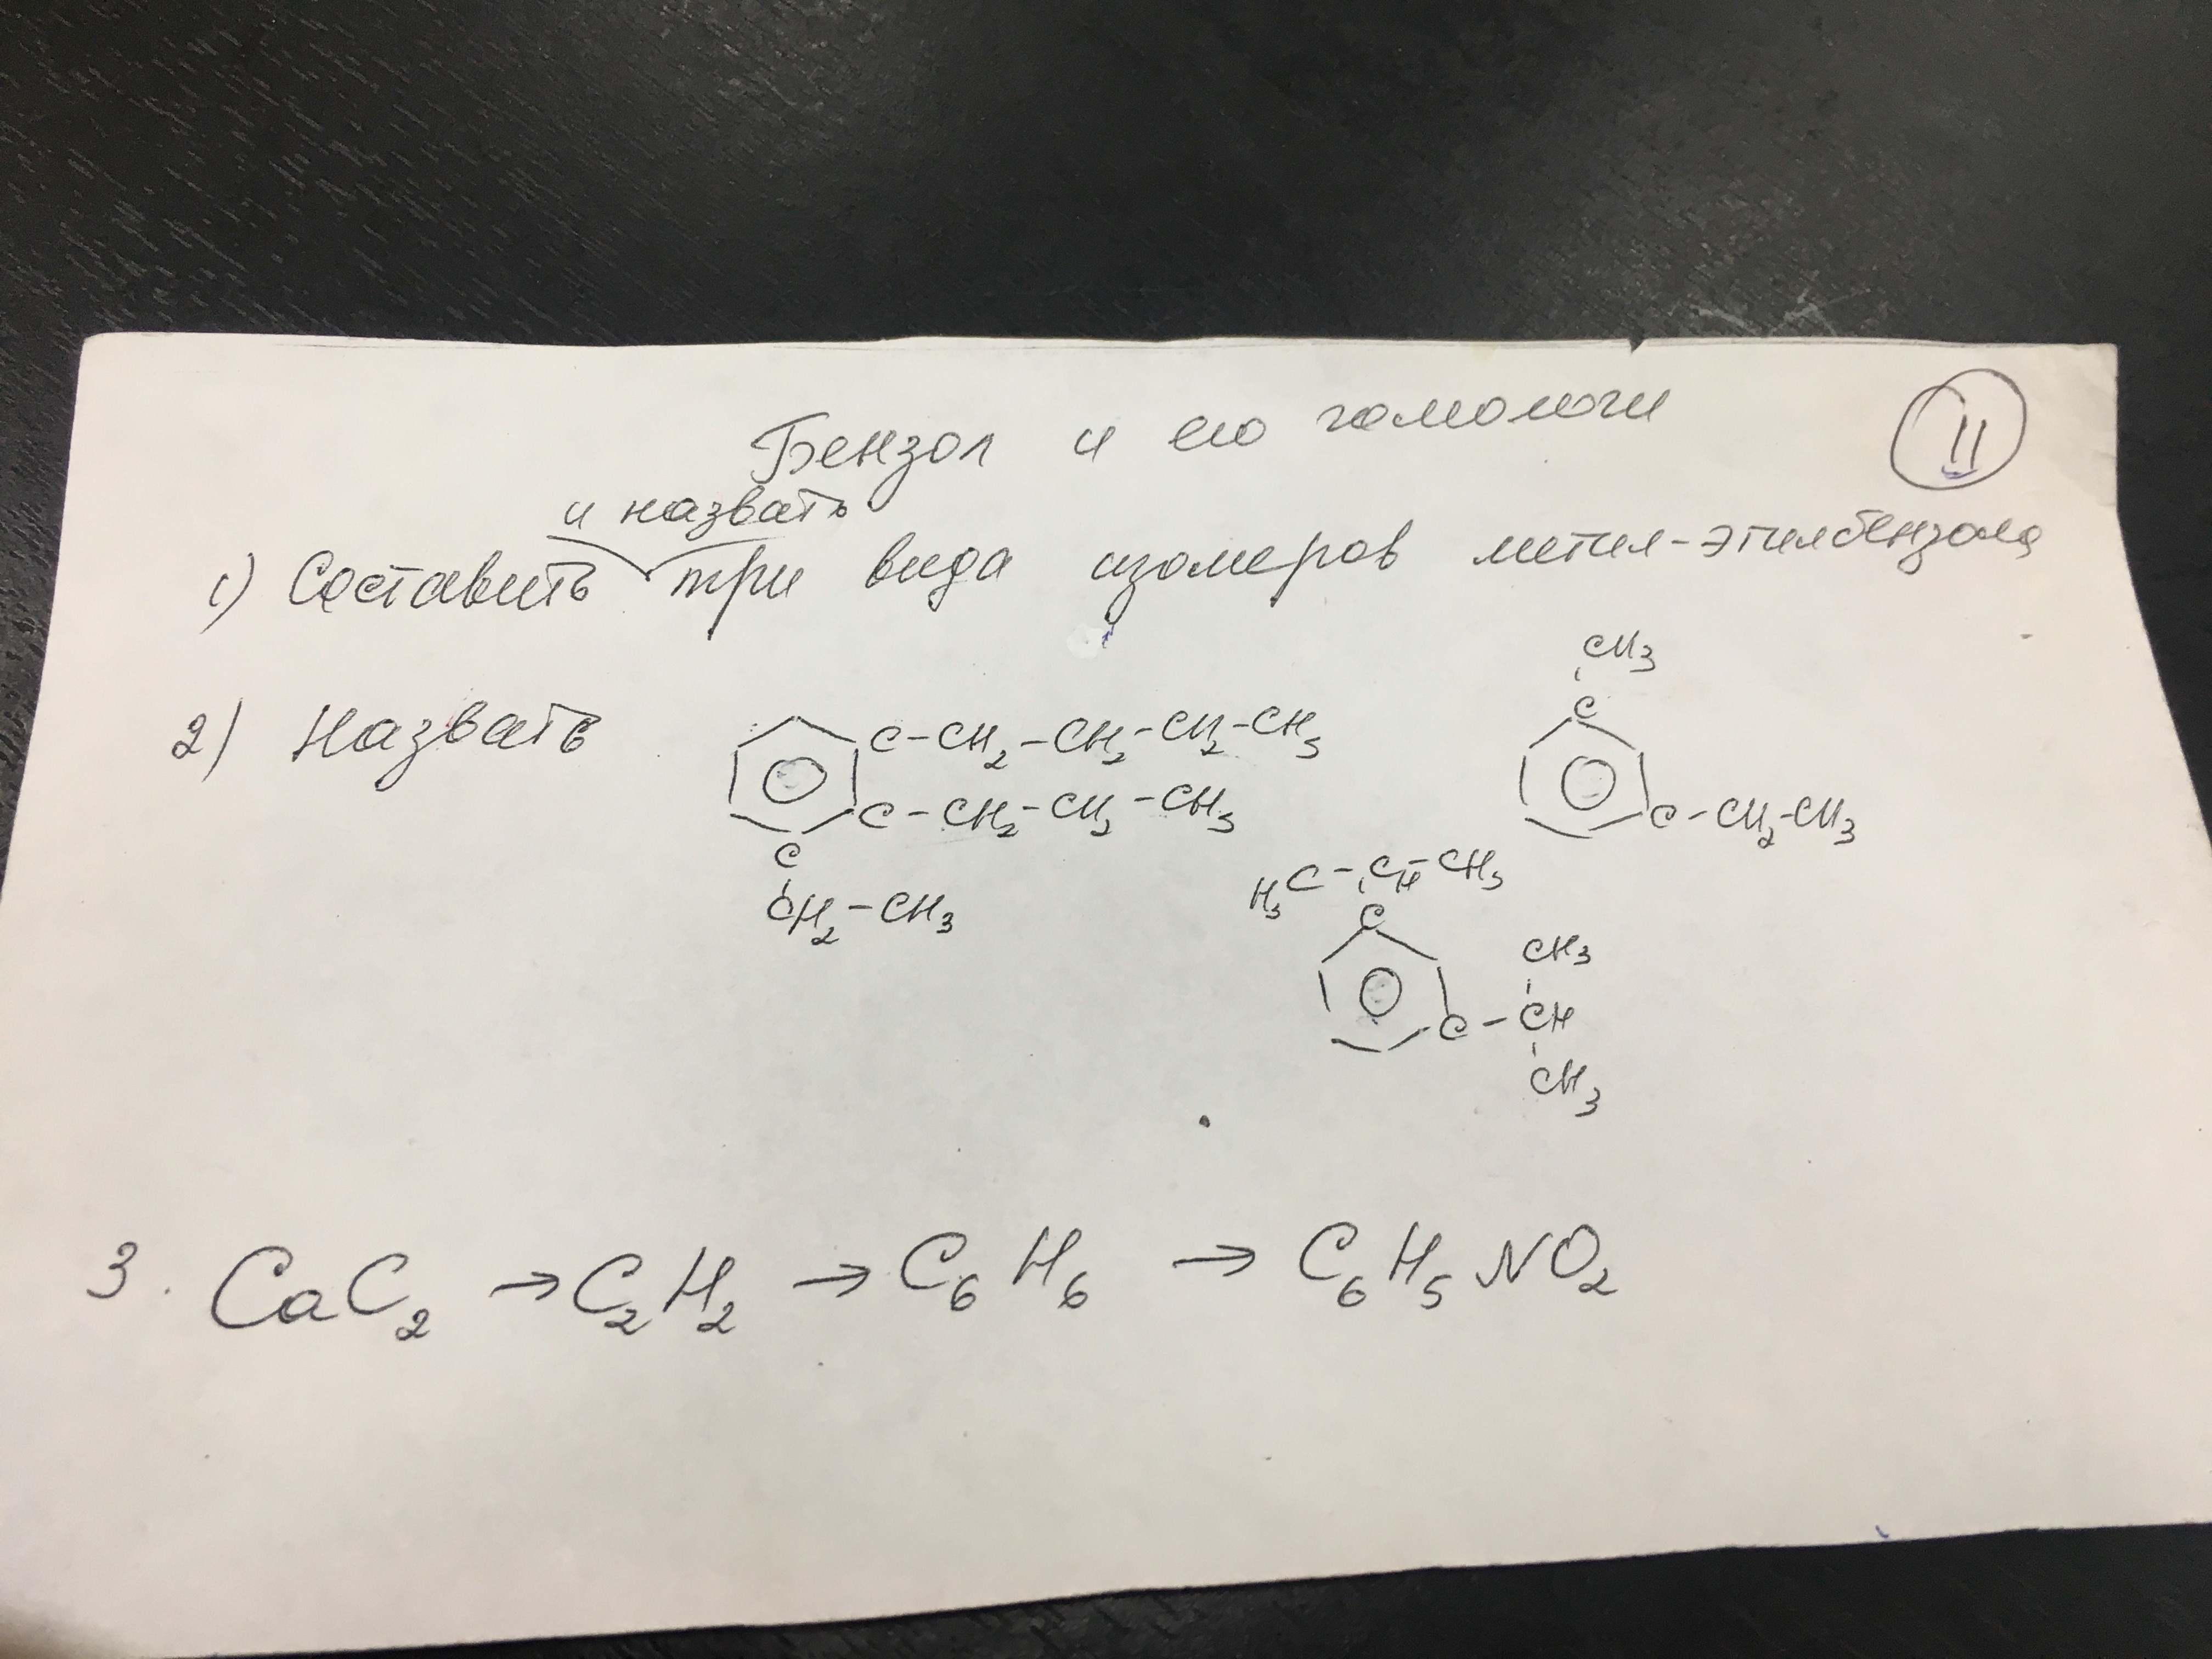 Бензол и его гомологи
II
и назвать
1) Составить три вида изомеров метил-этилбензола
2) Назвать
C-CH2-CH2-CH2-CH3
C-CH2-CH2-CH3
C
CH2-CH3
CH3
C
C-CH2-CH3
H3C-CH-CH3
C
CH3
C-CH
CH3
3. CaC2 → C2H2 → C6H6 → C6H5NO2